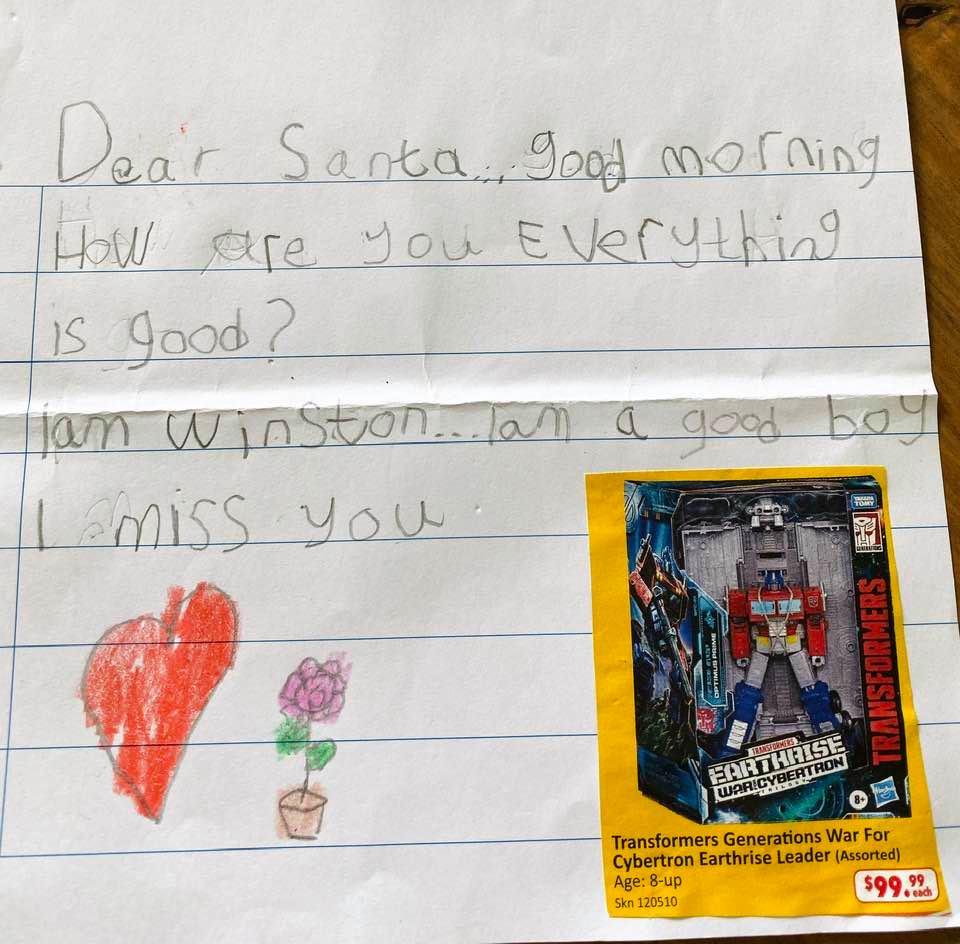 Dear Santa... good morning
How are you Everything
is good?
iam Winston... Iam a good boy
I miss you
TAKARA TOMY
GENERATIONS
TRANSFORMERS
OPTIMUS PRIME
TRANSFORMERS
EARTHRISE
WAR FOR CYBERTRON
TRILOGY
8+
Hasbro
Transformers Generations War For
Cybertron Earthrise Leader (Assorted)
Age: 8-up
Skn 120510
$99.99 each